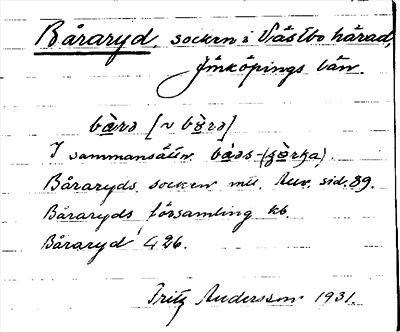 Båraryd, socken i Västbo härad,
Jönköpings län.
bàrə [~ bòrə]
I sammansättn. bàəs-(çòrka).
Båraryds socken mil. Rulv. sid. 89.
Båraryds församling kb.
Båraryd G 26.
Fritz Andersson 1931.